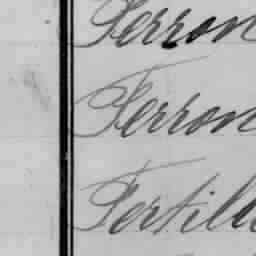 Ferron
Ferron
Fertill